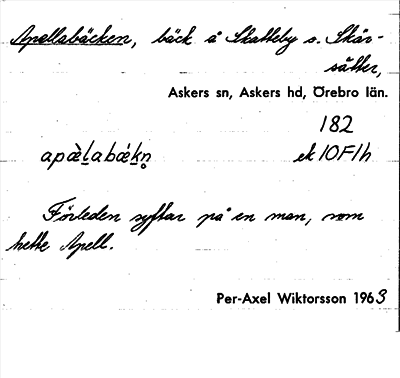 Apellabäcken, bäck å Skatteby o. Skär-
såtter,
Askers sn, Askers hd, Örebro län.
182
apæ̀l̠abǽk̠n̥ ek 10F1h
Förleden syftar på en man, som
hette Apell.
Per-Axel Wiktorsson 1963